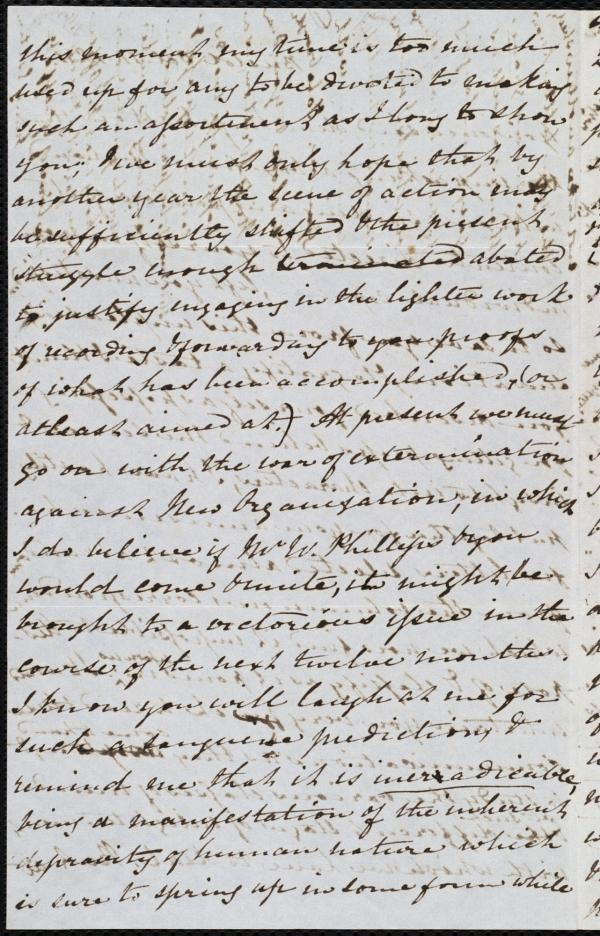 this moment my time is too much
used up for any to be devoted to making
such an assortment as I long to show
you; & we must only hope that by
another year the scene of action may
be sufficiently shifted & the present
struggle enough terminated abated
to justify engaging in the lighter work
of recording & forwarding to you proofs
of what has been accomplished, (or
at least aimed at.) At present we must
go on with the war of extermination
against New Organization, in which
I do believe if Mr W. Phillips & you
would come & unite, it might be
brought to a victorious issue in the
course of the next twelve months.
I know you will laugh at me for
such a sanguine prediction, &
remind me that it is ineradicable,
being a manifestation of the inherent
depravity of human nature which
is sure to spring up in some form while